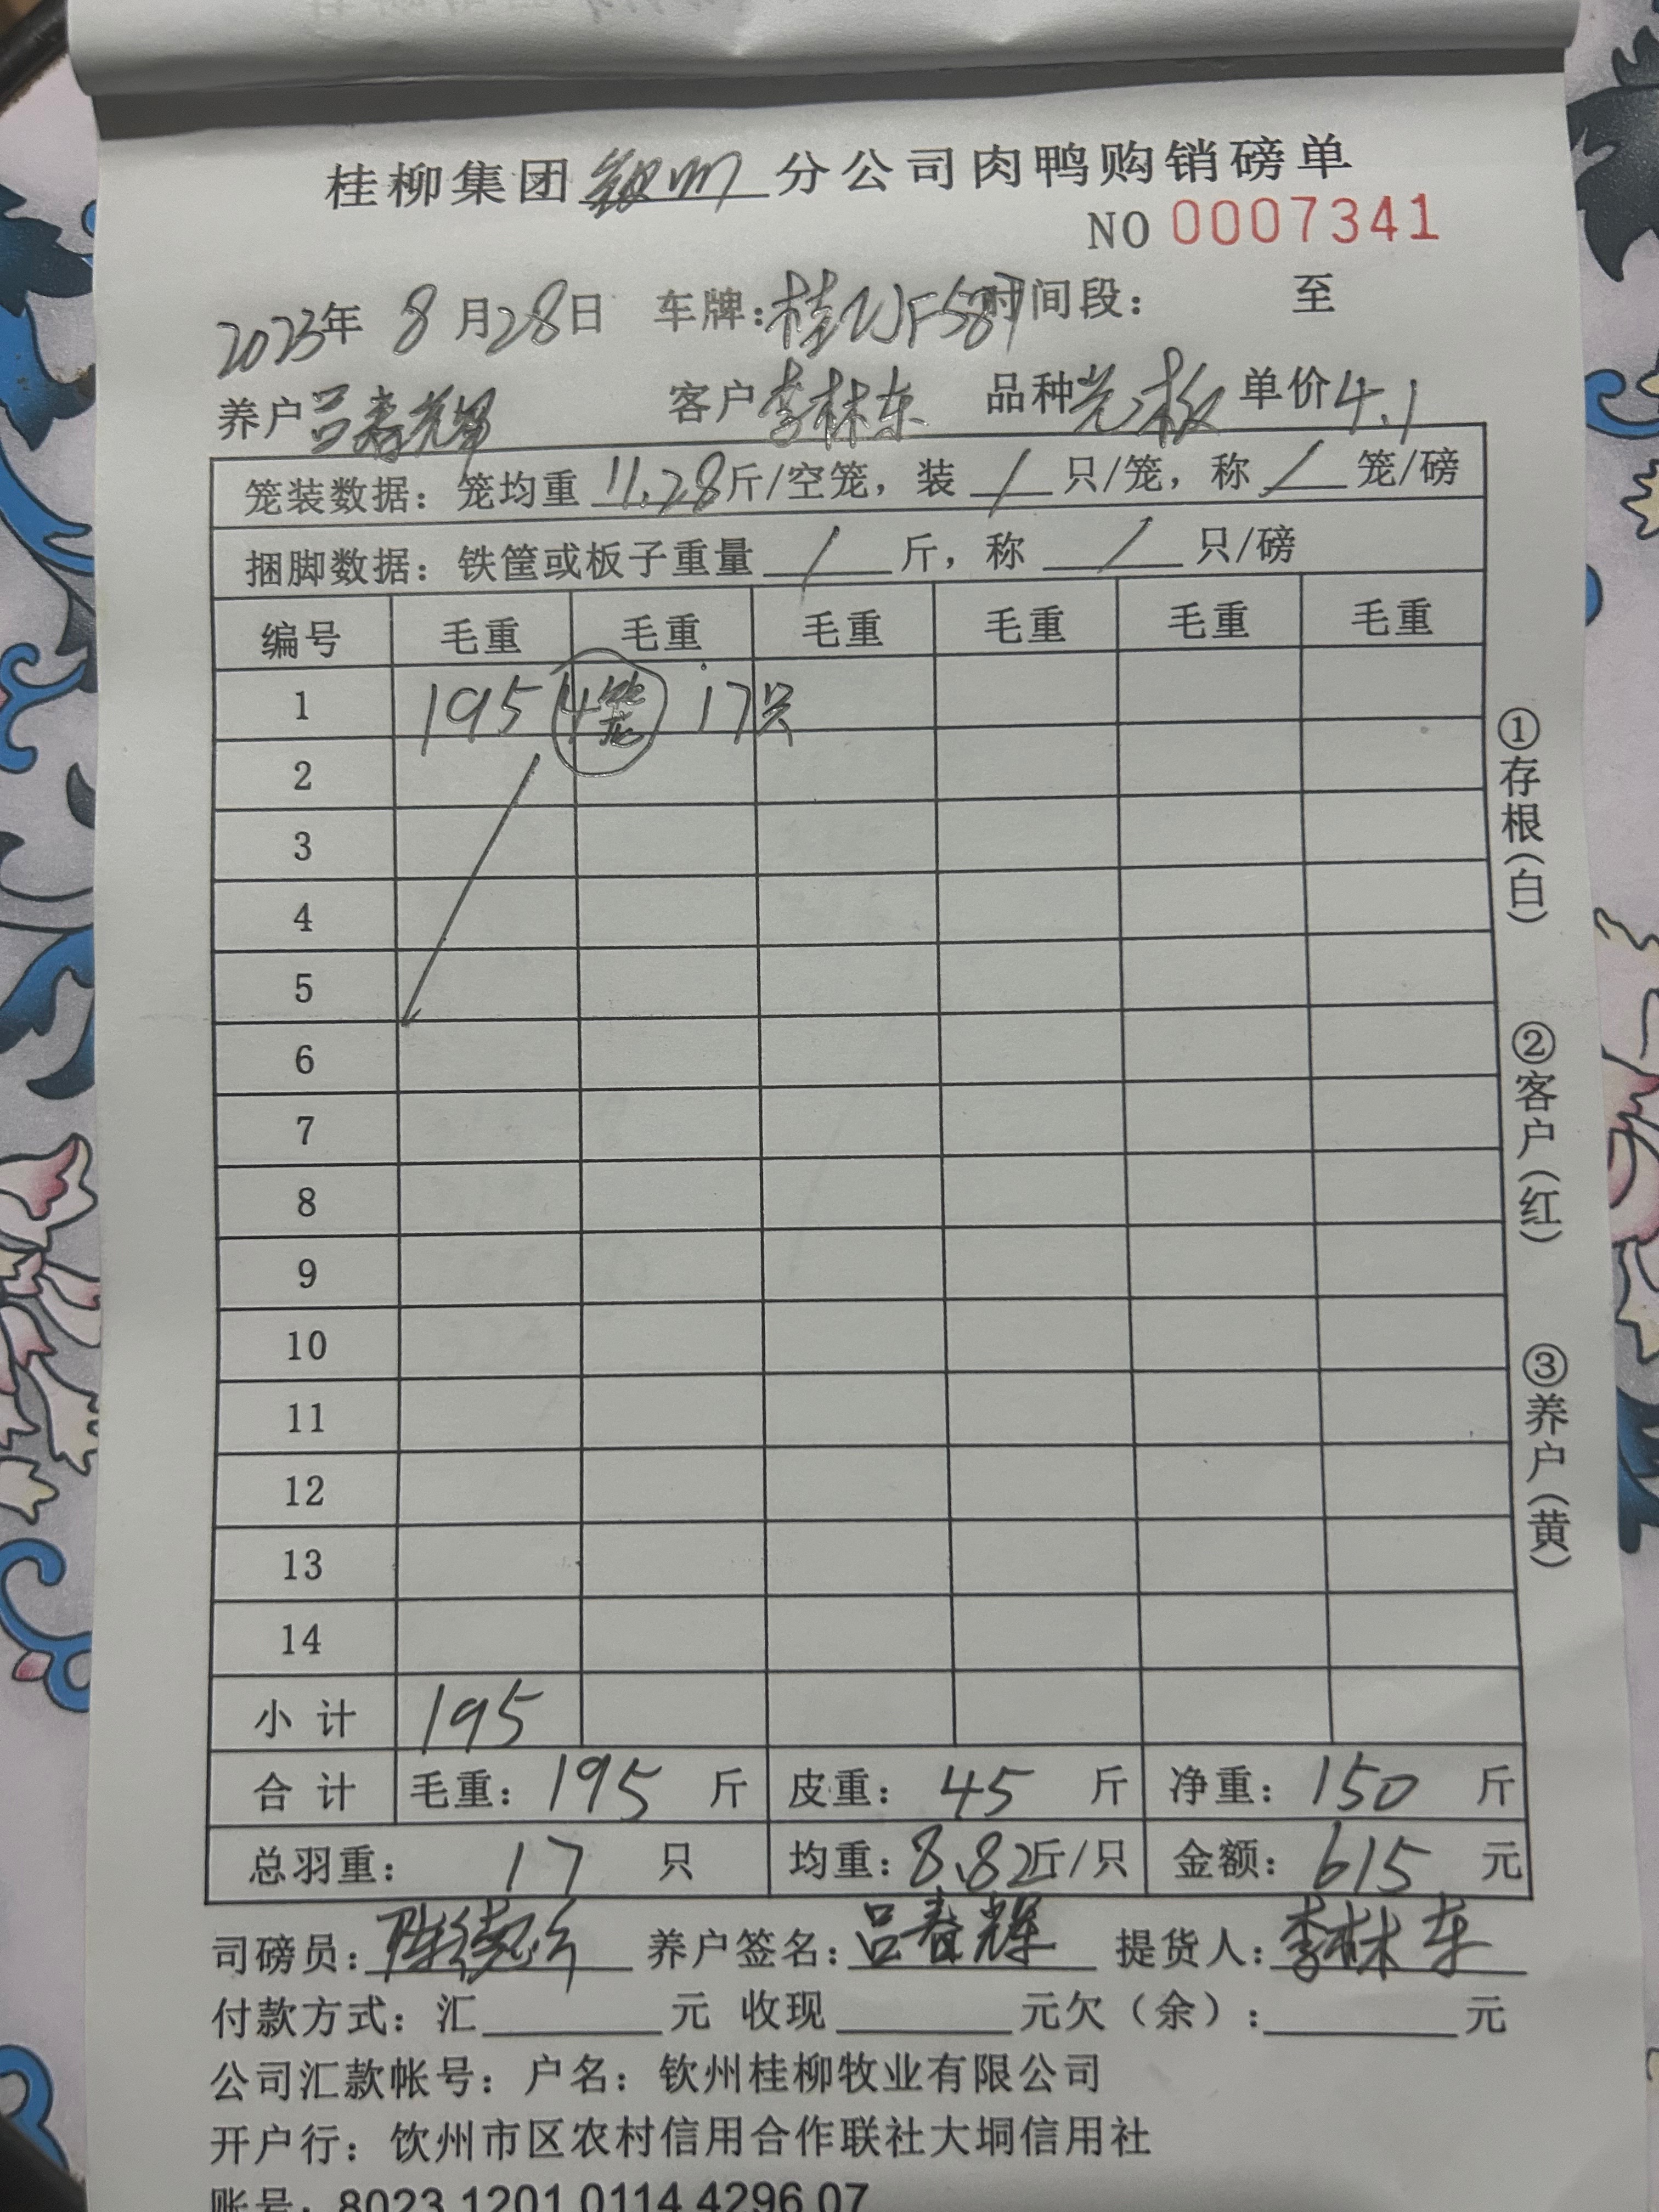 桂柳集团钦州分公司肉鸭购销磅单
NO 0007341
2023年 8月28日 车牌：桂 时间段： 至
养户吕春辉 客户李林东 品种光板 单价4.1
笼装数据：笼均重 11.28斤/空笼，装 / 只/笼，称 / 笼/磅
捆脚数据：铁筐或板子重量 / 斤，称 / 只/磅
编号 毛重 毛重 毛重 毛重 毛重 毛重
1 195 4笼 17只
2
3
4
5
6
7
8
9
10
11
12
13
14
小计 195
合计 毛重：195 斤 皮重：45 斤 净重：150 斤
总羽重： 17 只 均重：8.82斤/只 金额：615 元
司磅员： 养户签名：吕春辉 提货人：李林东
付款方式：汇 元 收现 元欠（余）： 元
公司汇款帐号：户名：钦州桂柳牧业有限公司
开户行：钦州市区农村信用合作联社大垌信用社
账号：8023 1201 0114 4296 07
①存根（白）
②客户（红）
③养户（黄）